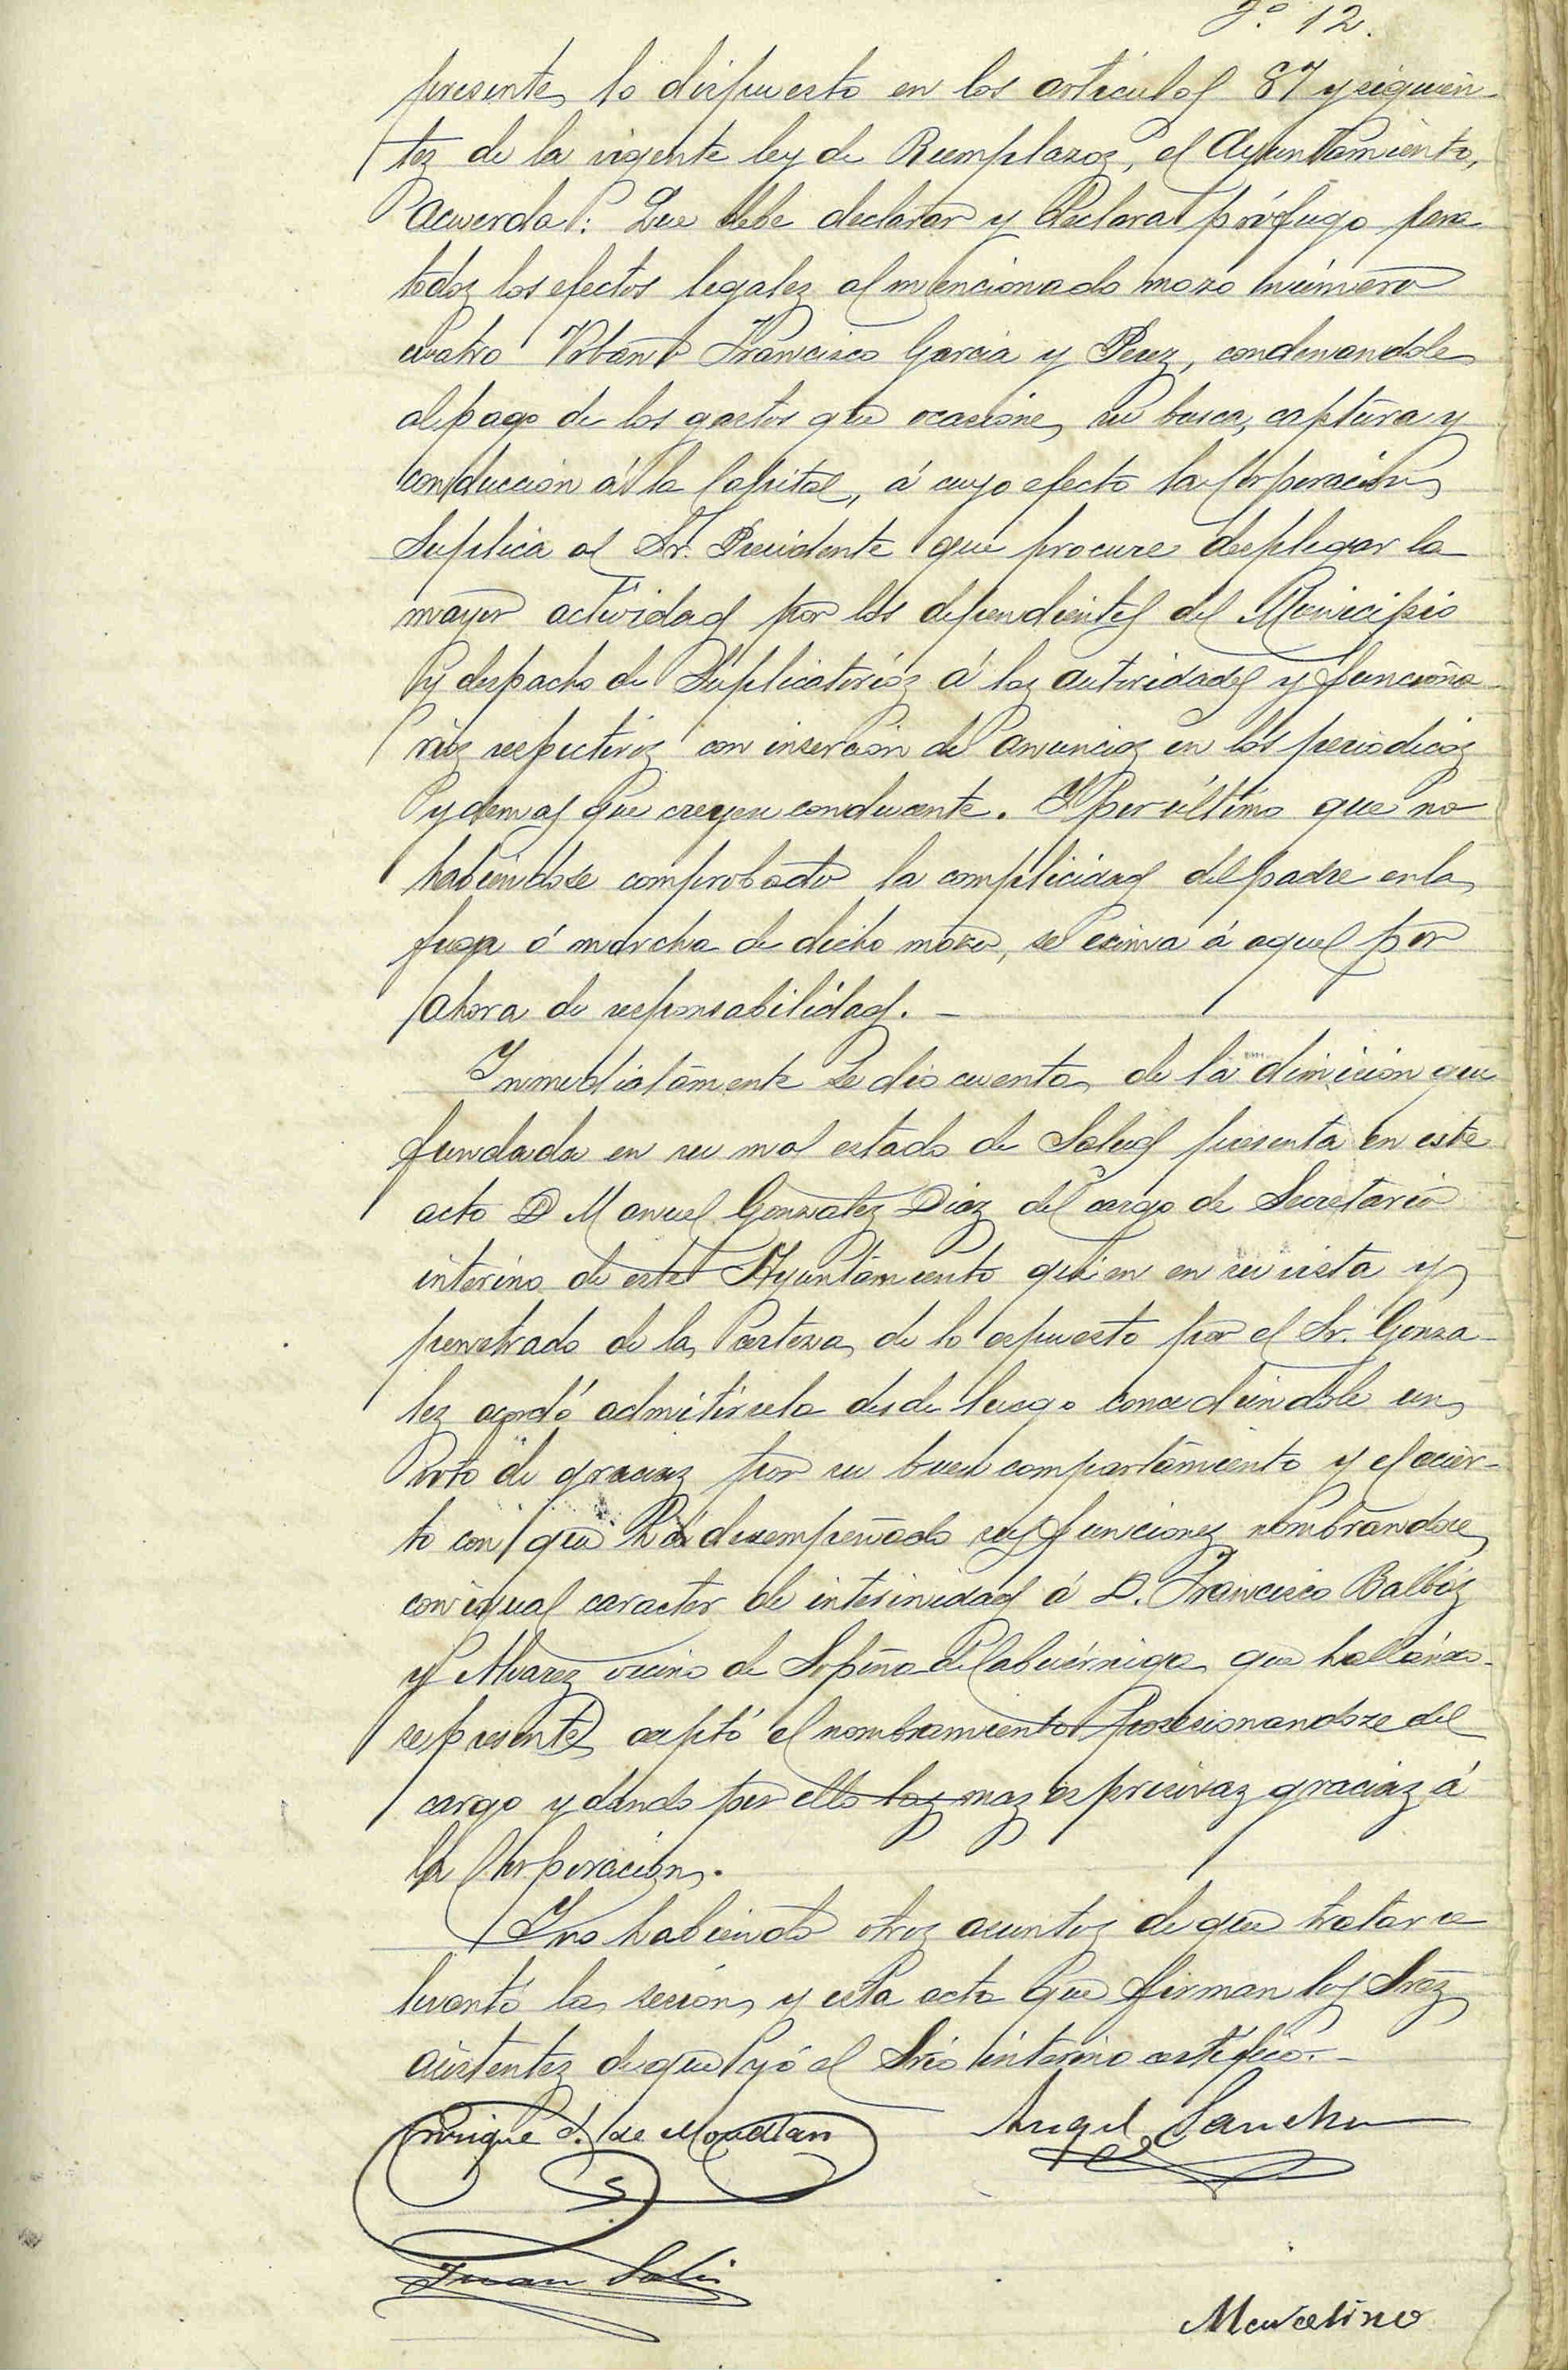 Fº 12.
presente lo dispuesto en los articulos 87 y siguien-
tes de la vigente ley de Reemplazos, el Ayuntamiento,
Acuerda: Que debe declarar y declara prófugo para
todos los efectos legales al mencionado mozo número
cuatro Urbano Francisco Garcia y Perez, condenandole
al pago de los gastos que ocasione su busca, captura y
conducción á la Capital, á cuyo efecto la Corporación
Suplica al Sr. Presidente que procure desplegar la
mayor actividad por los dependientes del Municipio
y despacho de Suplicatorios á las autoridades y funciona-
rios respectivos con inserción de anuncios en los periodicos
y demas que creyese conducente. Y por último que no
habiendose comprobado la complicidad del padre en la
fuga ó marcha de dicho mozo, se exima á aquel por
ahora de responsabilidad. -
Inmediatamente se dió cuenta de la dimisión que
fundada en su mal estado de Salud presenta en este
acto D Manuel Gonzalez Diaz del cargo de Secretario
interino de este Ayuntamiento quien en su vista y
penetrado de la certeza de lo espuesto por el Sr. Gonza-
lez acordó admitirsela desde luego concediendole un
voto de gracias por su buen comportamiento y el acier-
to con que há desempeñado sus funciones nombrandose
con igual caracter de interinidad á D. Francisco Balbás
y Alvarez vecino de Sopeña de Cabuérniga que hallándo-
se presente aceptó el nombramiento posesionandose del
cargo y dando por ello las mas espresivas gracias á
la Corporación.
Y no habiendo otros asuntos de que tratar se
levantó la sesión y esta acta que firman los Sres
asistentes de que yó el Srio interino certifico. -
Enrique d. de Angel Sanchez
Juan
Marcelino